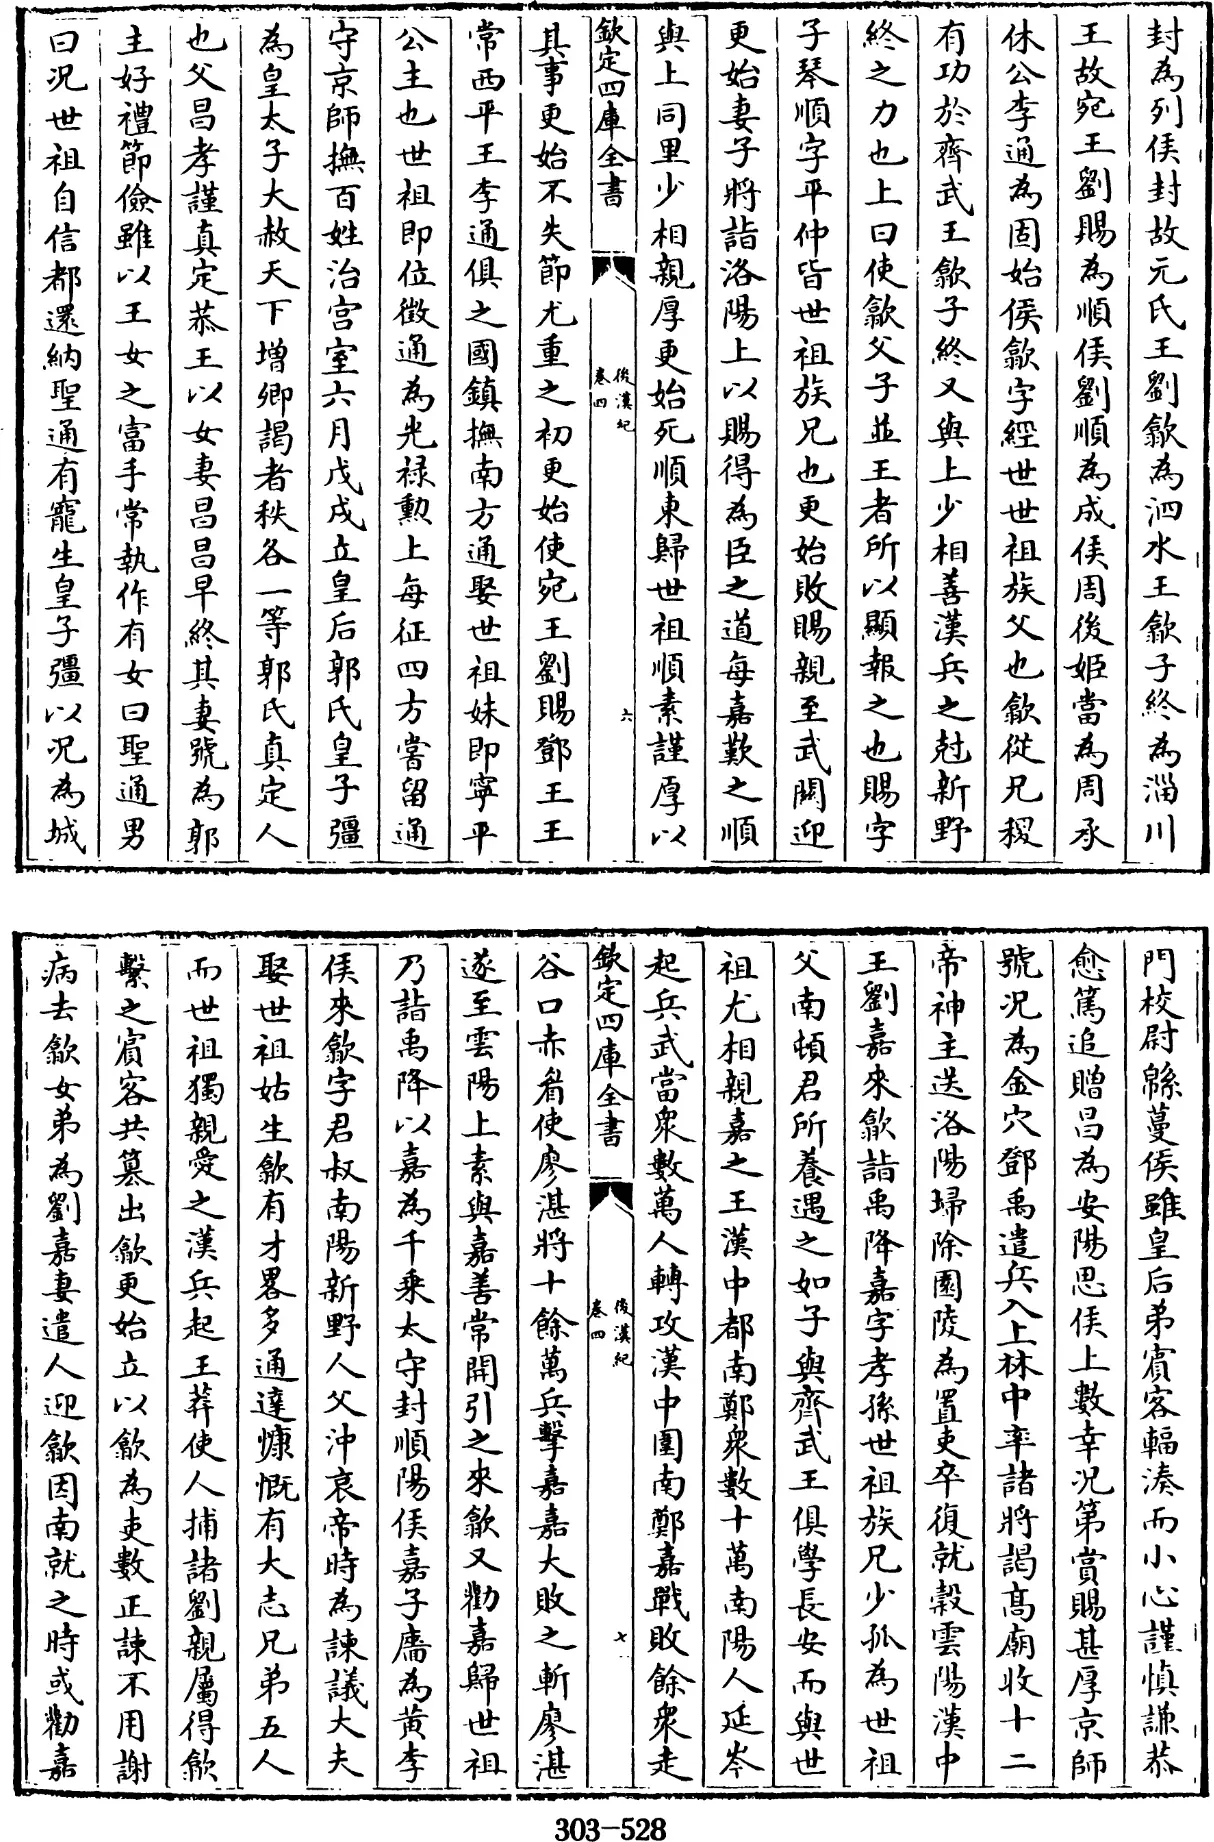 封為列侯封故元氏王劉歙為泗水王歙子終為淄川
王故宛王劉賜為順侯劉順為成侯周後姬當為周承
休公李通為固始侯歙字經世世祖族父也歙從兄稷
有功於齊武王歙子終又與上少相善漢兵之尅新野
終之力也上曰使歙父子並王者所以顯報之也賜字
子琴順字平仲皆世祖族兄也更始敗賜親至武關迎
更始妻子將詣洛陽上以賜得為臣之道每嘉歎之順
與上同里少相親厚更始死順東歸世祖順素謹厚以
欽定四庫全書 後漢紀 卷四 六
其事更始不失節尤重之初更始使宛王劉賜鄧王王
常西平王李通俱之國鎮撫南方通娶世祖妹即寧平
公主也世祖即位徵通為光祿勲上每征四方嘗留通
守京師撫百姓治宫室六月戊戌立皇后郭氏皇子彊
為皇太子大赦天下增卿謁者秩各一等郭氏真定人
也父昌孝謹真定恭王以女妻昌昌早終其妻號為郭
主好禮節儉雖以王女之富手常執作有女曰聖通男
曰况世祖自信都還納聖通有寵生皇子彊以况為城
門校尉緜蔓侯雖皇后弟賓客輻湊而小心謹慎謙恭
愈篤追贈昌為安陽思侯上數幸况第賞賜甚厚京師
號况為金穴鄧禹遣兵入上林中率諸將謁髙廟收十二
帝神主送洛陽埽除園陵為置吏卒復就穀雲陽漢中
王劉嘉來歙詣禹降嘉字孝孫世祖族兄少孤為世祖
父南頓君所養遇之如子與齊武王俱學長安而與世
祖尤相親嘉之王漢中都南鄭衆數十萬南陽人延岑
起兵武當衆數萬人轉攻漢中圍南鄭嘉戰敗餘衆走
欽定四庫全書 後漢紀 卷四 七
谷口赤眉使廖湛將十餘萬兵擊嘉嘉大敗之斬廖湛
遂至雲陽上素與嘉善常開引之來歙又勸嘉歸世祖
乃詣禹降以嘉為千乘太守封順陽侯嘉子廧為黄李
侯來歙字君叔南陽新野人父沖哀帝時為諫議大夫
娶世祖姑生歙有才畧多通達慷慨有大志兄弟五人
而世祖獨親愛之漢兵起王莽使人捕諸劉親屬得歙
繫之賓客共簒出歙更始立以歙為吏數正諫不用謝
病去歙女弟為劉嘉妻遣人迎歙因南就之時或勸嘉
303-528